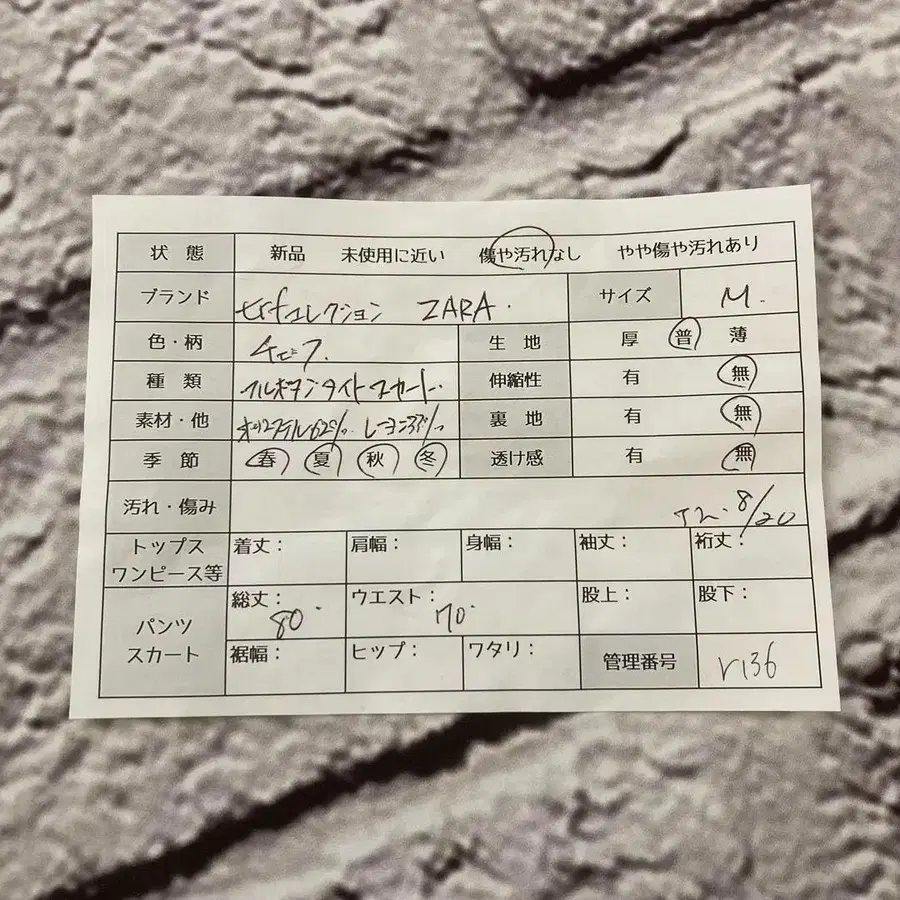 状態 新品 未使用に近い 傷や汚れなし やや傷や汚れあり
ブランド コレクション ZARA. サイズ M.
色・柄 生地 厚 普 薄
種類 フルボタンタイトスカート. 伸縮性 有 無
素材・他 ポリエステル62% レーヨン 裏地 有 無
季節 春 夏 秋 冬 透け感 有 無
汚れ・傷み 8/20
トップス ワンピース等 着丈: 肩幅: 身幅: 袖丈: 裄丈:
パンツ スカート 総丈: 80. ウエスト: 70. 股上: 股下:
裾幅: ヒップ: ワタリ: 管理番号 r136